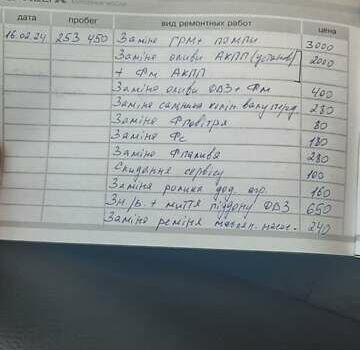 дата пробег вид ремонтных работ цена
16.02.24 253 450 Заміна ГРМ + помпи 3000
Заміна оливи АКПП (установ) 2000
+ Фм АКПП
Заміна оливи ДВЗ + Фм 400
Заміна сальника колін. валу перд. 280
Заміна Фповітря 80
Заміна Фс 180
Заміна Фпалива 280
Скидання сервісу 100
Заміна ролика дод. агр. 160
Зн/в. + миття піддону ДВЗ 650
Заміна реміня насос. 240